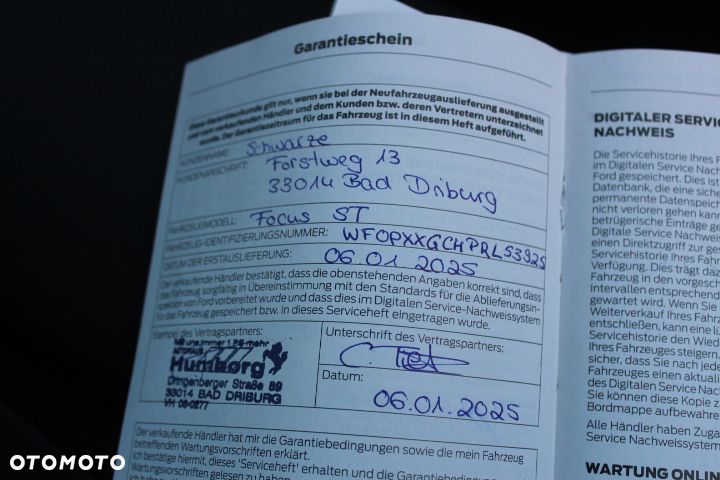 Garantieschein
Diese Garantieurkunde gilt nur, wenn sie bei der Neufahrzeugauslieferung ausgestellt
und vom verkaufenden Händler und dem Kunden bzw. deren Vertretern unterzeichnet
wurde. Der Garantiezeitraum für das Fahrzeug ist in diesem Heft aufgeführt.
KUNDENNAME: Schwarze
KUNDENANSCHRIFT: Forstweg 13
33014 Bad Driburg
FAHRZEUGMODELL: Focus ST
FAHRZEUG-IDENTIFIZIERUNGSNUMMER: WF0PXXGCHPRL53925
DATUM DER ERSTAUSLIEFERUNG: 06.01.2025
Der verkaufende Händler bestätigt, dass die obenstehenden Angaben korrekt sind, dass
das Fahrzeug sorgfältig in Übereinstimmung mit den Standards für die Ablieferungsin-
spektion von Ford vorbereitet wurde und dass dies im Digitalen Service-Nachweissystem
für das Fahrzeug gespeichert bzw. in dieses Serviceheft eingetragen wurde.
Stempel des Vertragspartners:
Mit uns immer 1 PS mehr
AUTOHAUS
Humborg
Dringenberger Straße 89
33014 BAD DRIBURG
VH 05-0277
Unterschrift des Vertragspartners:
Datum:
06.01.2025
Der verkaufende Händler hat mir die Garantiebedingungen sowie die mein Fahrzeug
betreffenden Wartungsvorschriften erklärt.
Ich bestätige hiermit, dieses 'Serviceheft' erhalten und die Garantiebedingungen
Wartungsvorschriften gelesen zu haben.
DIGITALER SERVIC
NACHWEIS
Die Servicehistorie Ihres F
im Digitalen Service Nachw
Ford gespeichert. Dies ist
Datenbank, die eine siche
permanente Datenspeich
nicht verloren gehen kann
betrügerische Einträge ge
Digitale Service Nachweis
einen Direktzugriff zur ges
Servicehistorie Ihres Fahrz
Verfügung. Dies trägt dazu
Fahrzeug in den vorgesch
Intervallen entsprechend
gewartet wird. Wenn Sie
Weiterverkauf Ihres Fahrz
entschließen, kann eine lü
Servicehistorie den Wied
Ihres Fahrzeuges steigern
sicher, dass Sie nach jede
Fahrzeuges einen aktuali
des Digitalen Service Nac
Sie können diese Kopie z
Bordmappe aufbewahre
Alle Händler haben Zuga
Service Nachweissystem
WARTUNG ONLIN
OTOMOTO